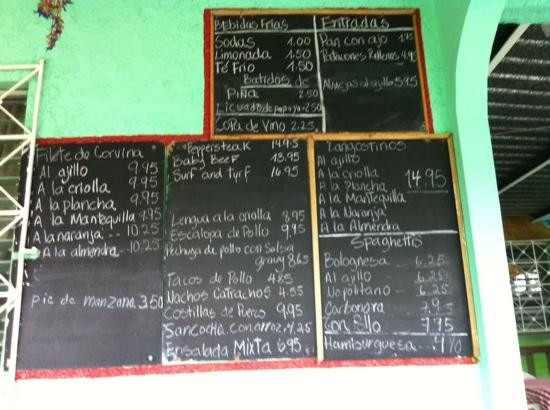 Bebidas Frias
Sodas 1.00
Limonada 1.50
Té Frio 1.50
Batidos de
Piña 2.50
Licuado de papaya 2.50
Copa de Vino 2.25
Entradas
Pan con ajo 1.95
Patacones Rellenos 4.95
Almejas al ajillo 5.95
Filete de Corvina
Al ajillo 9.95
A la criolla 9.95
A la plancha 9.95
A la Mantequilla 9.95
A la naranja -- 10.25
A la almendra -- 10.25
pie de manzana 3.50
Peppersteak 14.95
Baby Beef 13.95
Surf and turf 16.95
Lengua a la criolla 8.95
Escalopa de Pollo 9.95
Pechuga de pollo con salsa
gravy 8.65
Tacos de Pollo 4.85
Nachos Catrachos 4.55
Costillas de Puerco 9.95
Sancocho con arroz 4.25
Ensalada Mixta 6.95
Langostinos
Al ajillo
A la criolla
A la Plancha 14.95
A la Mantequilla
A la Naranja
A la Almendra
Spaghettis
Bolognesa -- 6.25
Al ajillo -- 6.25
Napolitano -- 6.25
Carbonara 7.95
Con Pollo 7.95
Hamburguesa